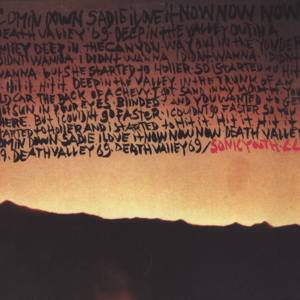 COMIN DOWN SADIE I LOVE IT NOW NOW NOW
DEATH VALLEY '69 DEEP IN THE VALLEY OUT IN A
MILEY DEEP IN THE CANYON WAY OUT IN THE YONDER
DIDN'T WANNA I DIDN'T WANNA I DIDN'T
WANNA BUT SHE STARTED TO HOLLER SO I STARTED
HIT IT HIT IT DEEP IN THE TRUNK OF AN
OLD CAR THE BACK OF A CHEVY I GOT SAND IN MY MOUTH
SUN IN YOUR EYES BLINDED AND YOU WANTED TO GET
THERE BUT I COULDN'T GO FASTER I COULDN'T GO FASTER SO I
STARTED TO HOLLER AND I STARTED HIT IT HIT IT
COMIN DOWN SADIE I LOVE IT NOW NOW NOW DEATH VALLEY
69. DEATH VALLEY 69 DEATH VALLEY 69/SONIC YOUTH.LL